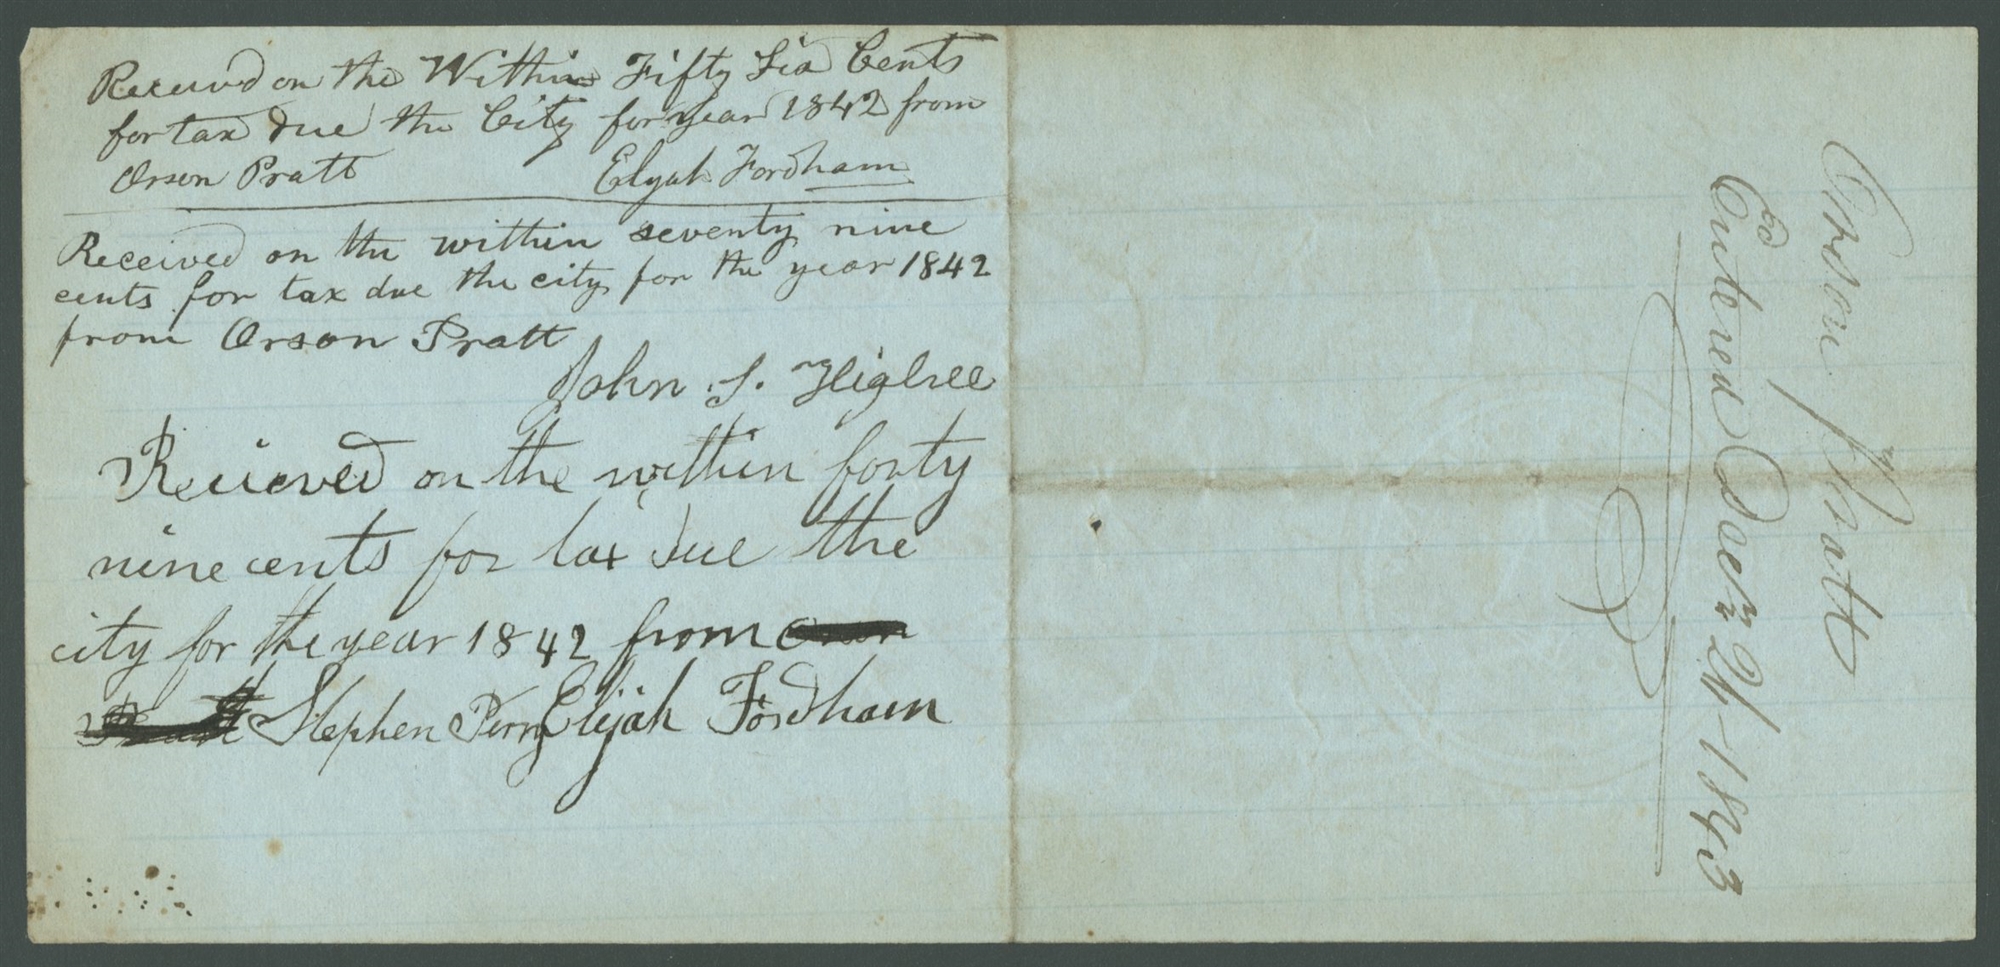 Received on the Within Fifty Six Cents
for tax due the City for year 1842 from
Orson Pratt Elijah Fordham
Received on the within seventy nine
cents for tax due the city for the year 1842
from Orson Pratt
John S. Higbee
Recieved on the within forty
nine cents for tax due the
city for the year 1842 from
Stephen Perry Elijah Fordham
Orson Pratt
Entered Decr 1843